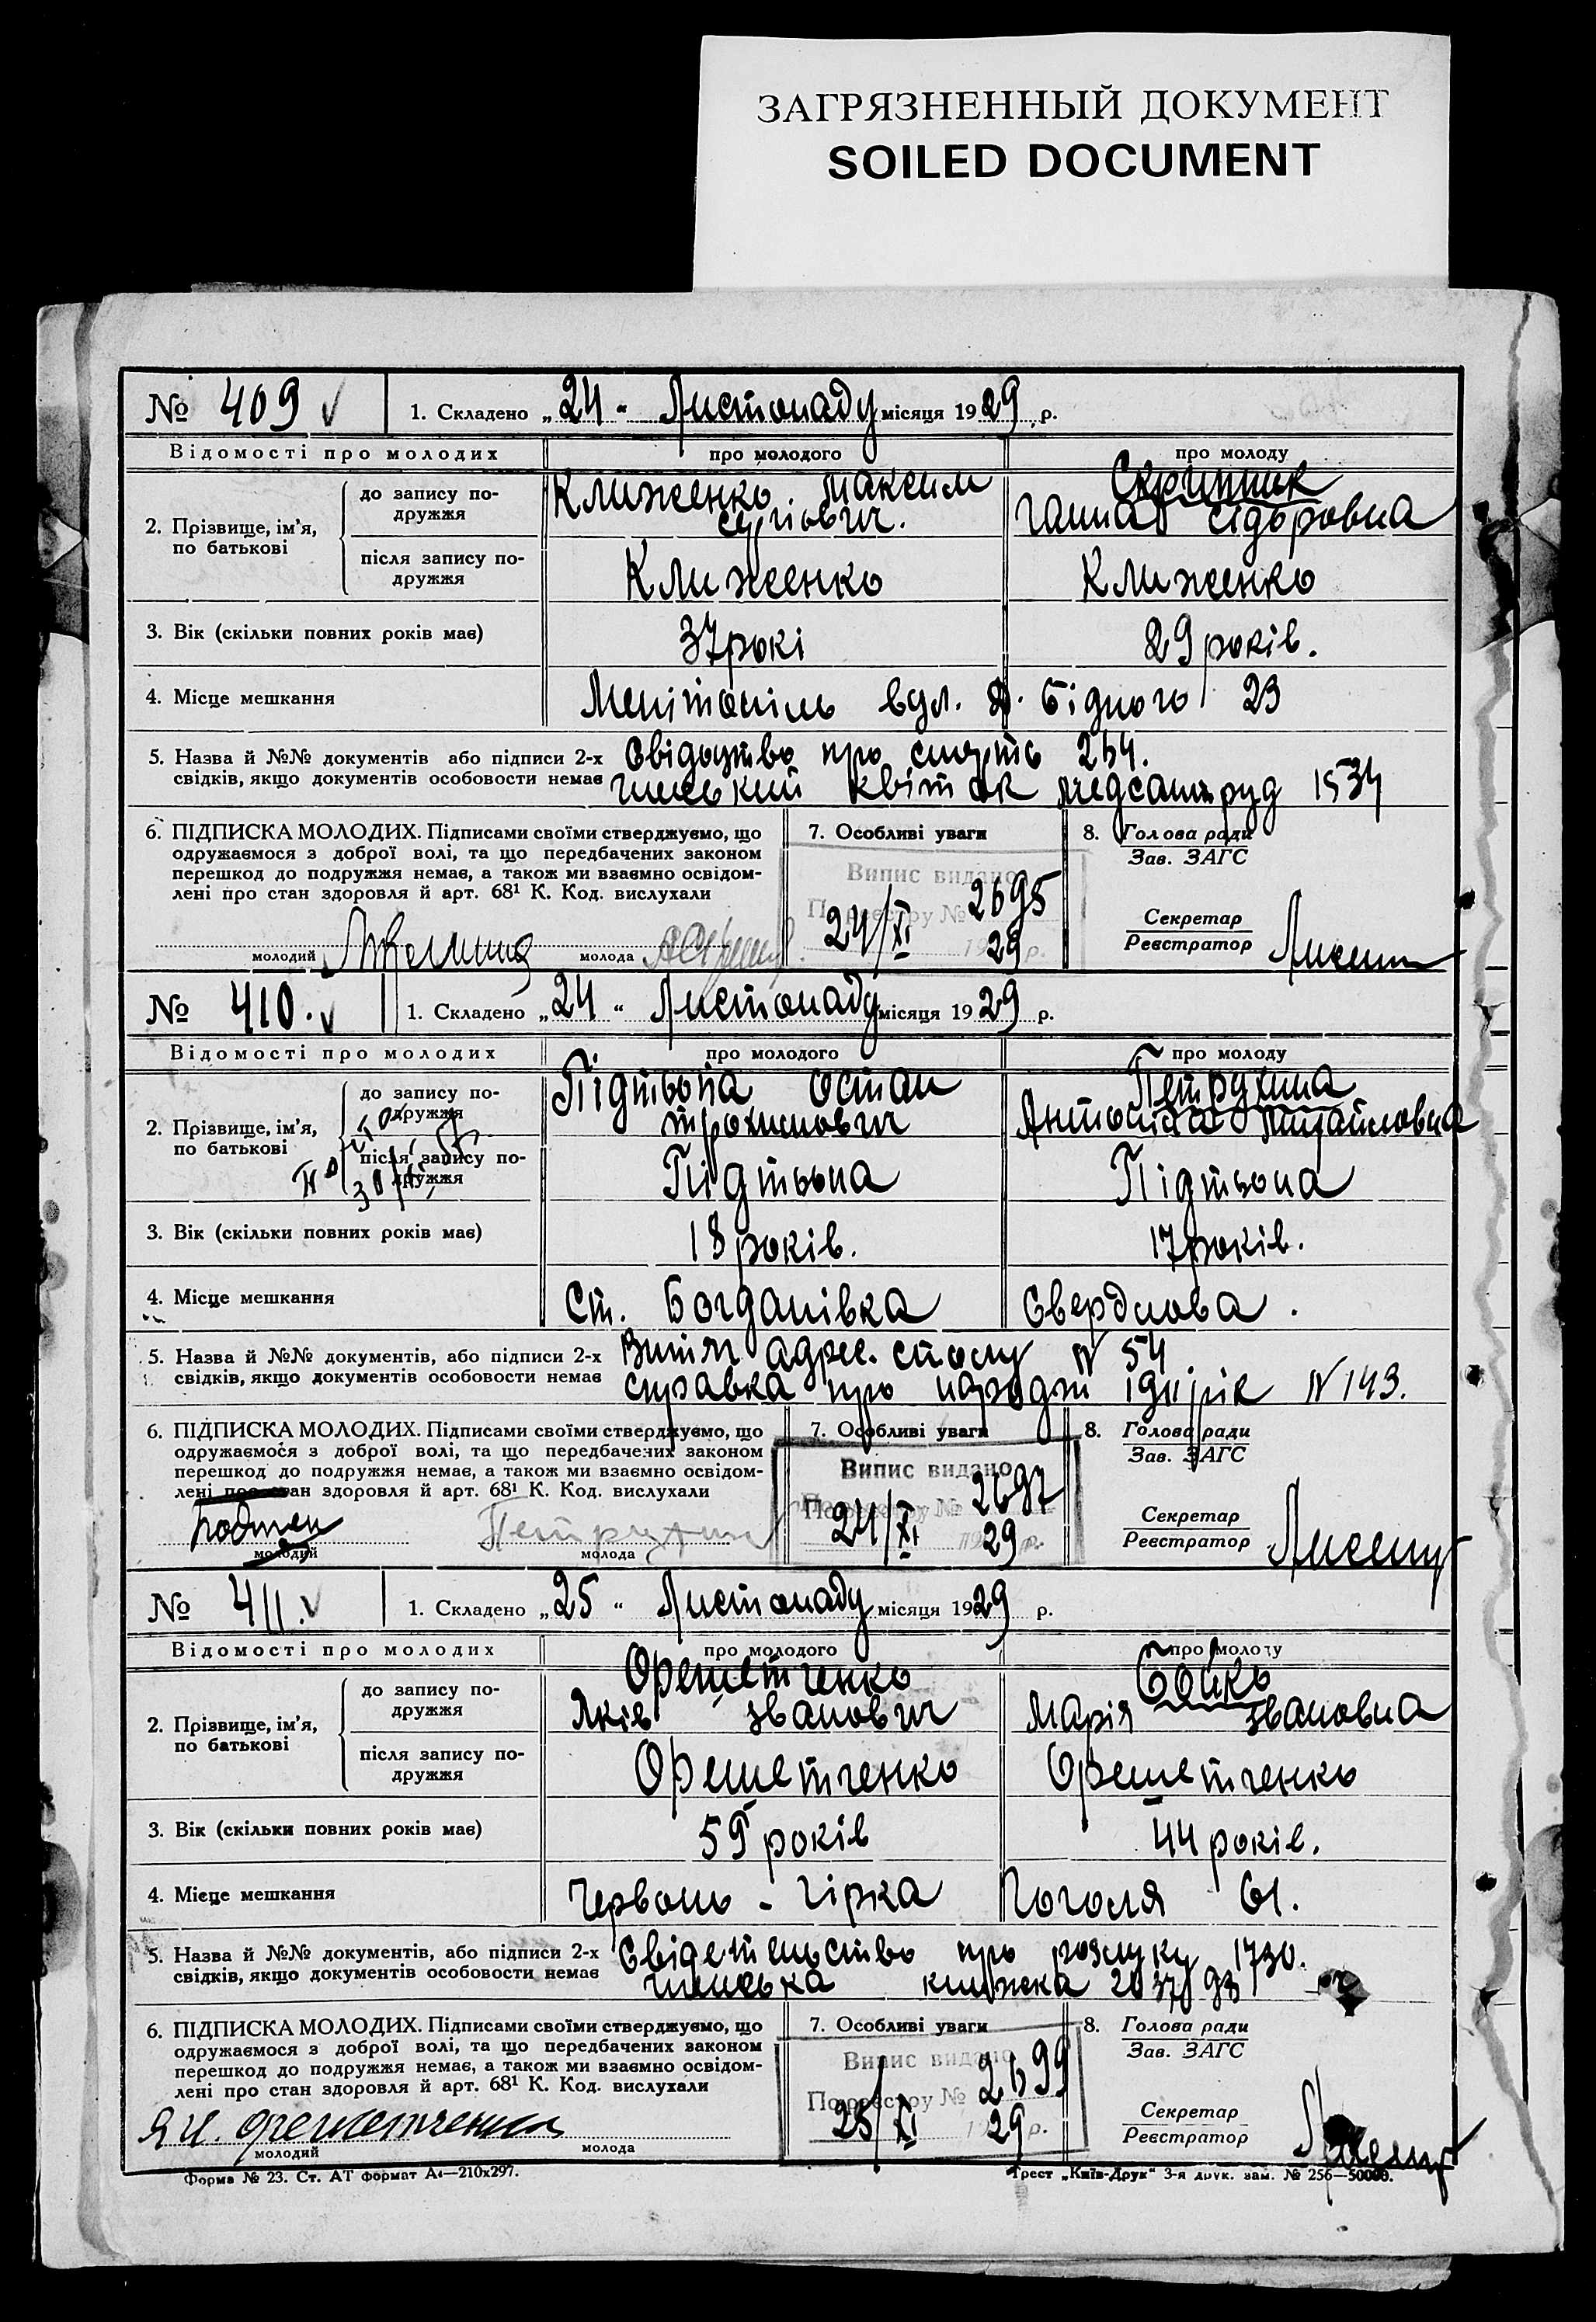 ЗАГРЯЗНЕННЫЙ ДОКУМЕНТ
SOILED DOCUMENT
№ 409 1. Складено „24“ Листопаду місяця 1929 р.
Відомості про молодих про молодого про молоду
2. Прізвище, ім’я, по батькові
до запису подружжя
Клименко Максим Сергіович.
Скрипник Ганна Сідоровна
після запису подружжя
Клименко Клименко
3. Вік (скільки повних років має) 37 рокі 29 років.
4. Місце мешкання Мелітопіль вул. Д. Бідного 23
5. Назва й №№ документів або підписи 2-х Свідоцтво про смерть 254.
свідків, якщо документів особовости немає членський квіток медсантруд 1534
6. ПІДПИСКА МОЛОДИХ. Підписами своїми стверджуємо, що
одружаємося з доброї волі, та що передбачених законом
перешкод до подружжя немає, а також ми взаємно освідом-
лені про стан здоровля й арт. 68¹ К. Код. вислухали
молодий молода
7. Особливі уваги
Випис видано
По реєстру № 2695
24/XI 1929 р.
8. Голова ради
Зав. ЗАГС
Секретар
Реєстратор
№ 410. 1. Складено „24“ Листопаду місяця 1929 р.
Відомості про молодих про молодого про молоду
2. Прізвище, ім’я, по батькові
до запису подружжя
Підтьопа Остап
Петрухина
після запису подружжя
Підтьопа Підтьопа
3. Вік (скільки повних років має) 18 років. 17 років.
4. Місце мешкання Ст. Богданівка Свердлова.
5. Назва й №№ документів, або підписи 2-х Витяг адрес. столу N 54
свідків, якщо документів особовости немає справка про N 143.
6. ПІДПИСКА МОЛОДИХ. Підписами своїми стверджуємо, що
одружаємося з доброї волі, та що передбачених законом
перешкод до подружжя немає, а також ми взаємно освідом-
лені про стан здоровля й арт. 68¹ К. Код. вислухали
молодий Петрухин молода
7. Особливі уваги
Випис видано
По реєстру № 2697
24/XI 1929 р.
8. Голова ради
Зав. ЗАГС
Секретар
Реєстратор
№ 411. 1. Складено „25“ Листопаду місяця 1929 р.
Відомості про молодих про молодого про молоду
2. Прізвище, ім’я, по батькові
до запису подружжя
Орешетченко Яків Івановіч
Бойко Марія Івановна
після запису подружжя
Орешетченко Орешетченко
3. Вік (скільки повних років має) 59 років 44 років.
4. Місце мешкання Червона - Гірка Гоголя 61.
5. Назва й №№ документів, або підписи 2-х Свідетельство про розлуку 1730.
свідків, якщо документів особовости немає членська книжка
6. ПІДПИСКА МОЛОДИХ. Підписами своїми стверджуємо, що
одружаємося з доброї волі, та що передбачених законом
перешкод до подружжя немає, а також ми взаємно освідом-
лені про стан здоровля й арт. 68¹ К. Код. вислухали
Я И. Орешетченко
молодий молода
7. Особливі уваги
Випис видано
По реєстру № 2699
25/XI 1929 р.
8. Голова ради
Зав. ЗАГС
Секретар
Реєстратор
Форма № 23. Ст. АТ формат А4—210х297.
Трест „Київ-Друк“ 3-я друк. зам. № 256—50000.